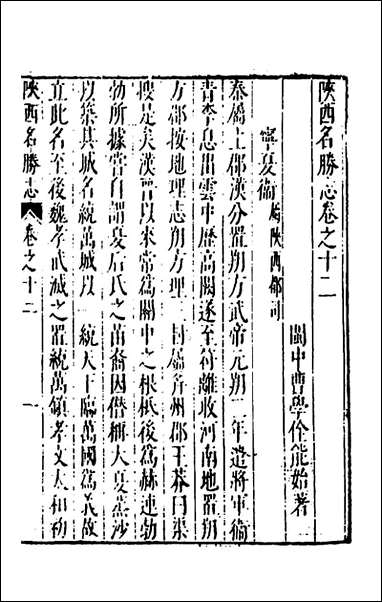 陝西名勝志卷之十二
閩中曹學佺能始著
寧夏衞 屬陝西都司
秦屬上郡漢分置朔方武帝元朔二年遣將軍衞
青李息出雲中歷高闕遂至符離收河南地置朔
方郡按地理志朔方理三封屬并州郡王莽曰渠
搜是矣漢晉以來常爲關中之根柢後爲赫連勃
勃所據嘗自謂夏后氏之苗裔因僭稱大夏蒸沙
以築其城名統萬城以一統天下臨萬國爲義故
立此名至後魏孝武滅之置統萬鎮孝文太和初
陝西名勝志 卷之十二 一